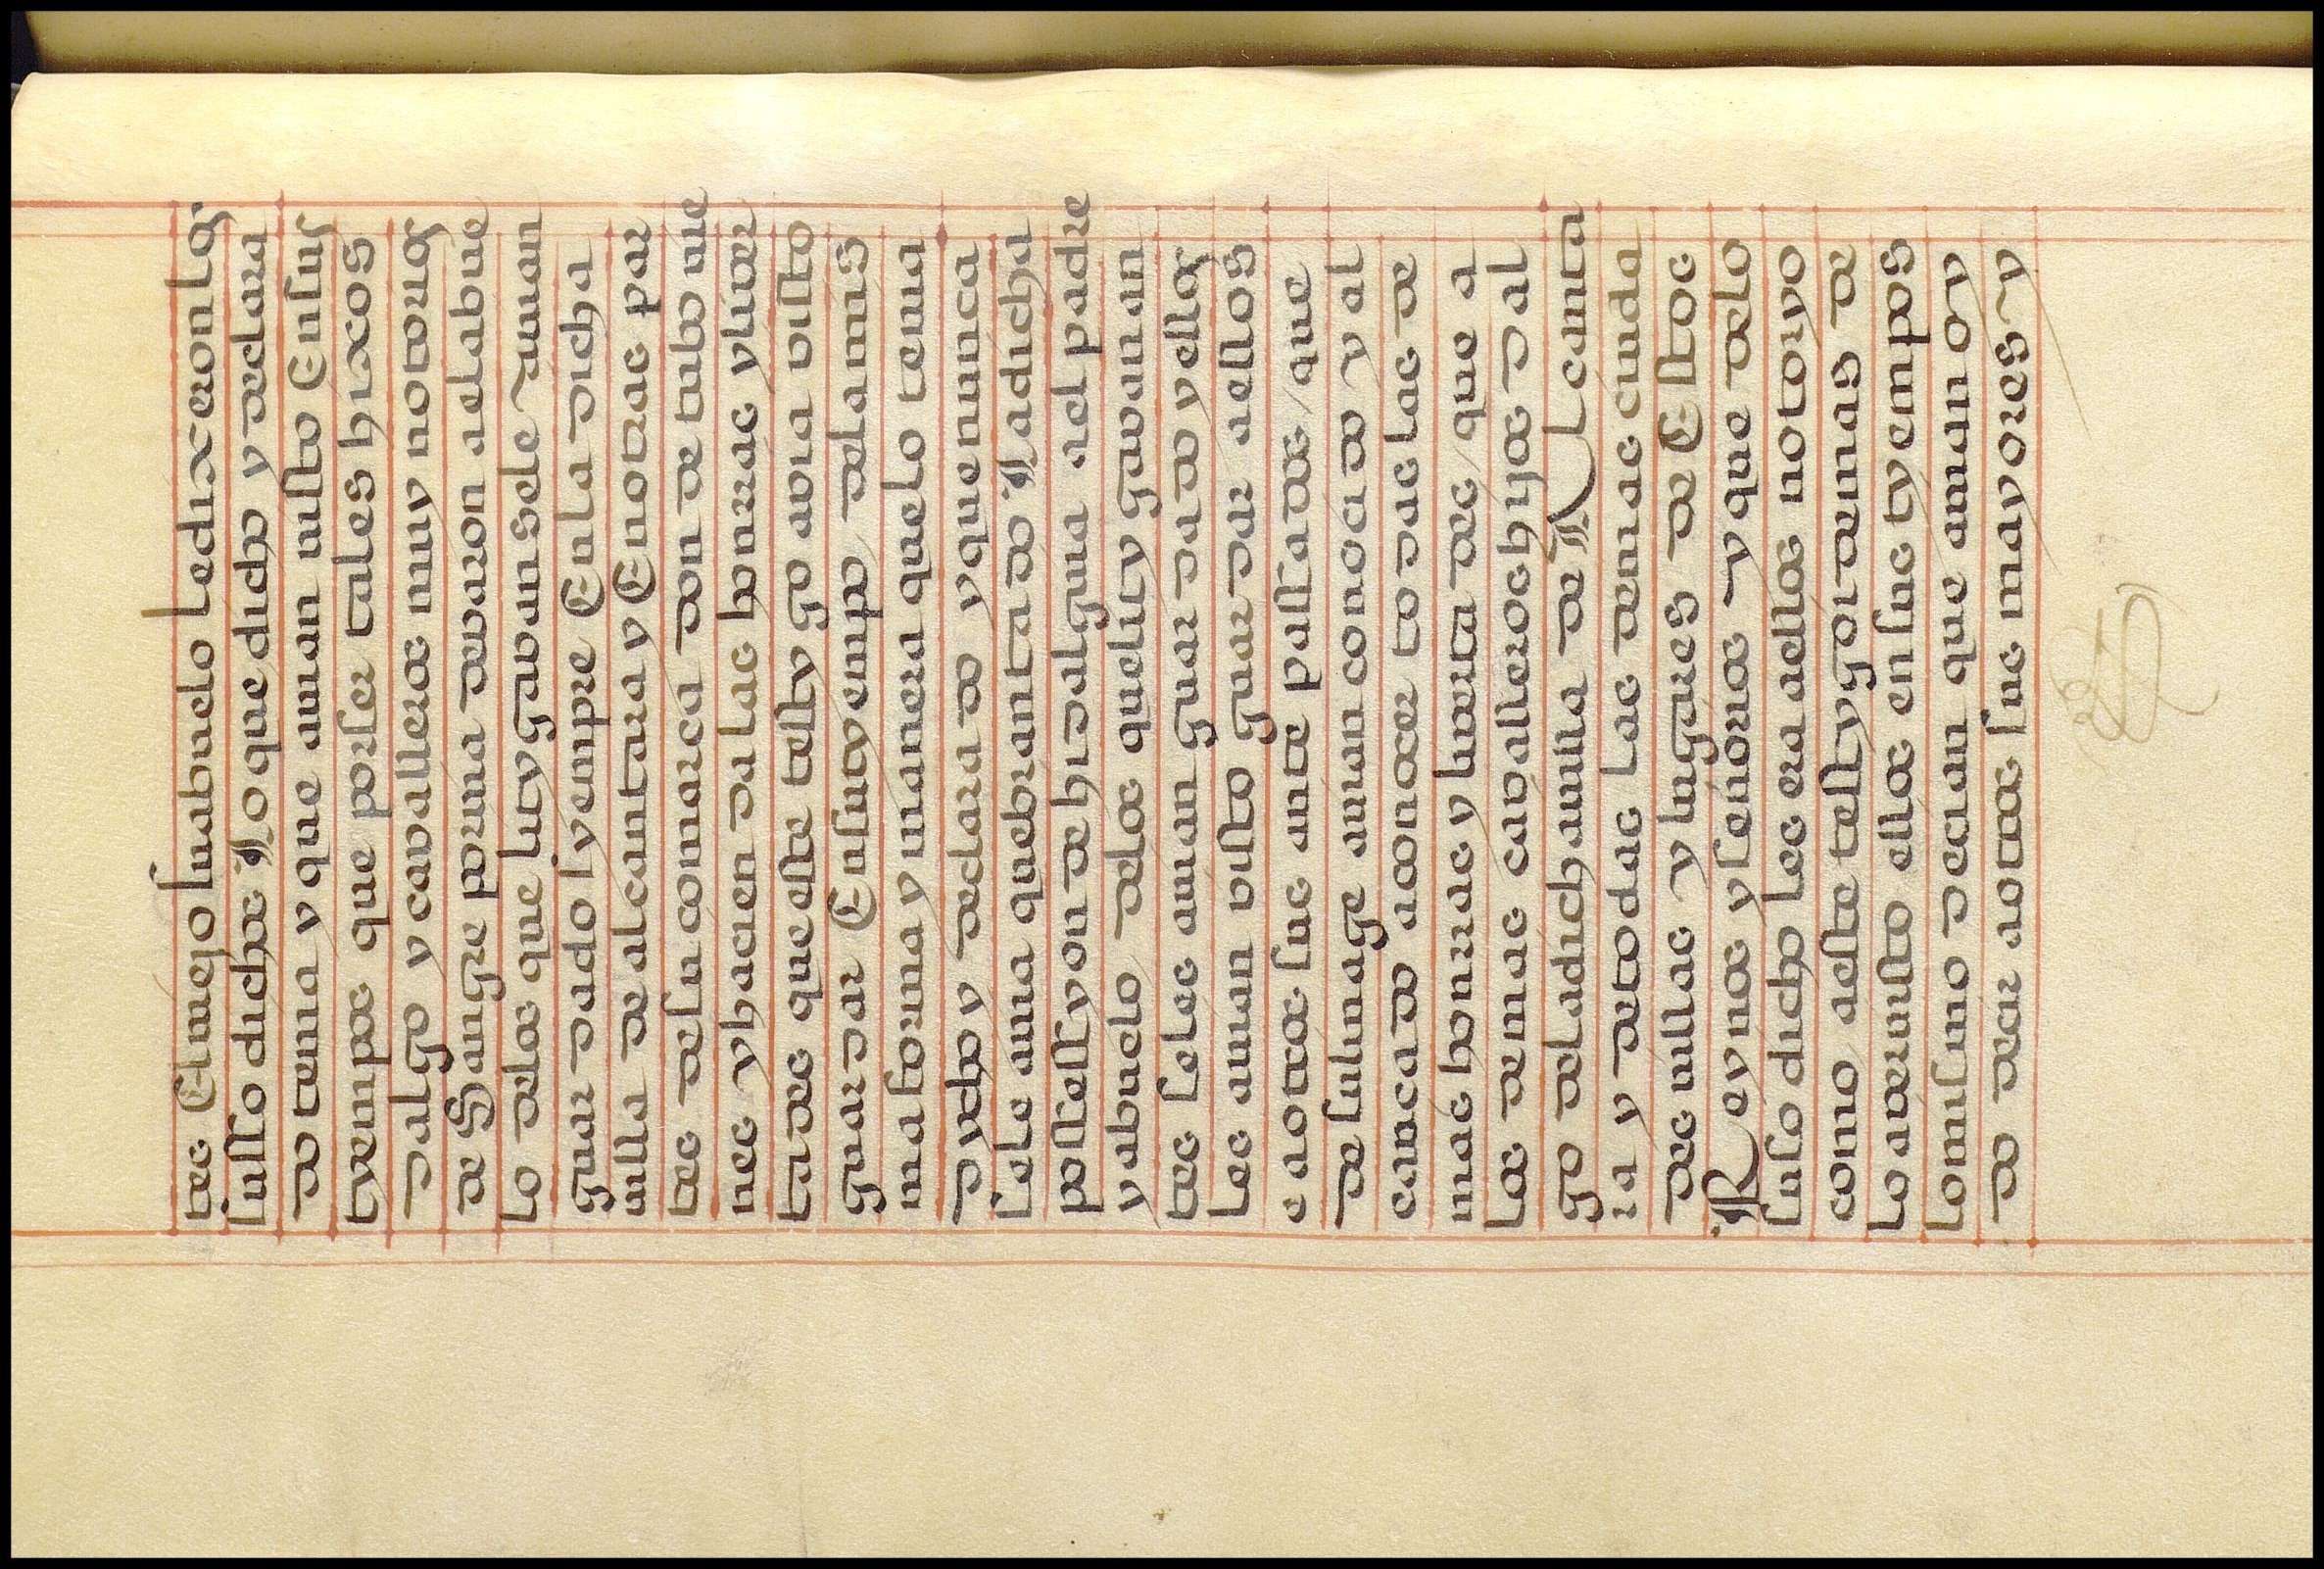 tes El viejo su abuelo le dixeron los
susso dichos Lo que dicho y declara
do tenia y que auian visto En sus
tyempos que por ser tales hixos
dalgo y cavalleros muy notorios
de Sangre por via de varon a el abue
lo de los que lityga van se le auian
guar dado syempre En la dicha
villa de alcantara y En otras par
tes de su comarca don de tubo vie
nes y hacien da las honrras y liber
ta des que este testy go avia visto
guar dar En su tyempo de la mis
ma forma y manera que lo tenia
dycho y declara do y que nunca
se le auia quebranta do La dicha
possessyon de hidalguia a el padre
y abuelo de los que lity gavan an
tes se les auian guar da do y ellos
les auian visto guar dar a ellos
e a otros sus ante passados / que
de su linage auian conoci do y al
canca do a conocer to das las de
mas honrras y liberta des / que a
los de mas cavalleros hijos d al
go de la dicha villa de Alcanta
ra y de to das las demas ciuda
des villas y lugares de Estos
Reynos y señorios y que de lo
suso dicho les era a ellos notoryo
como a este testygo i demas de
lo aver visto ellos en sus tyempos
lo mismo decian que auian oy
do decir a otros sus mayores y